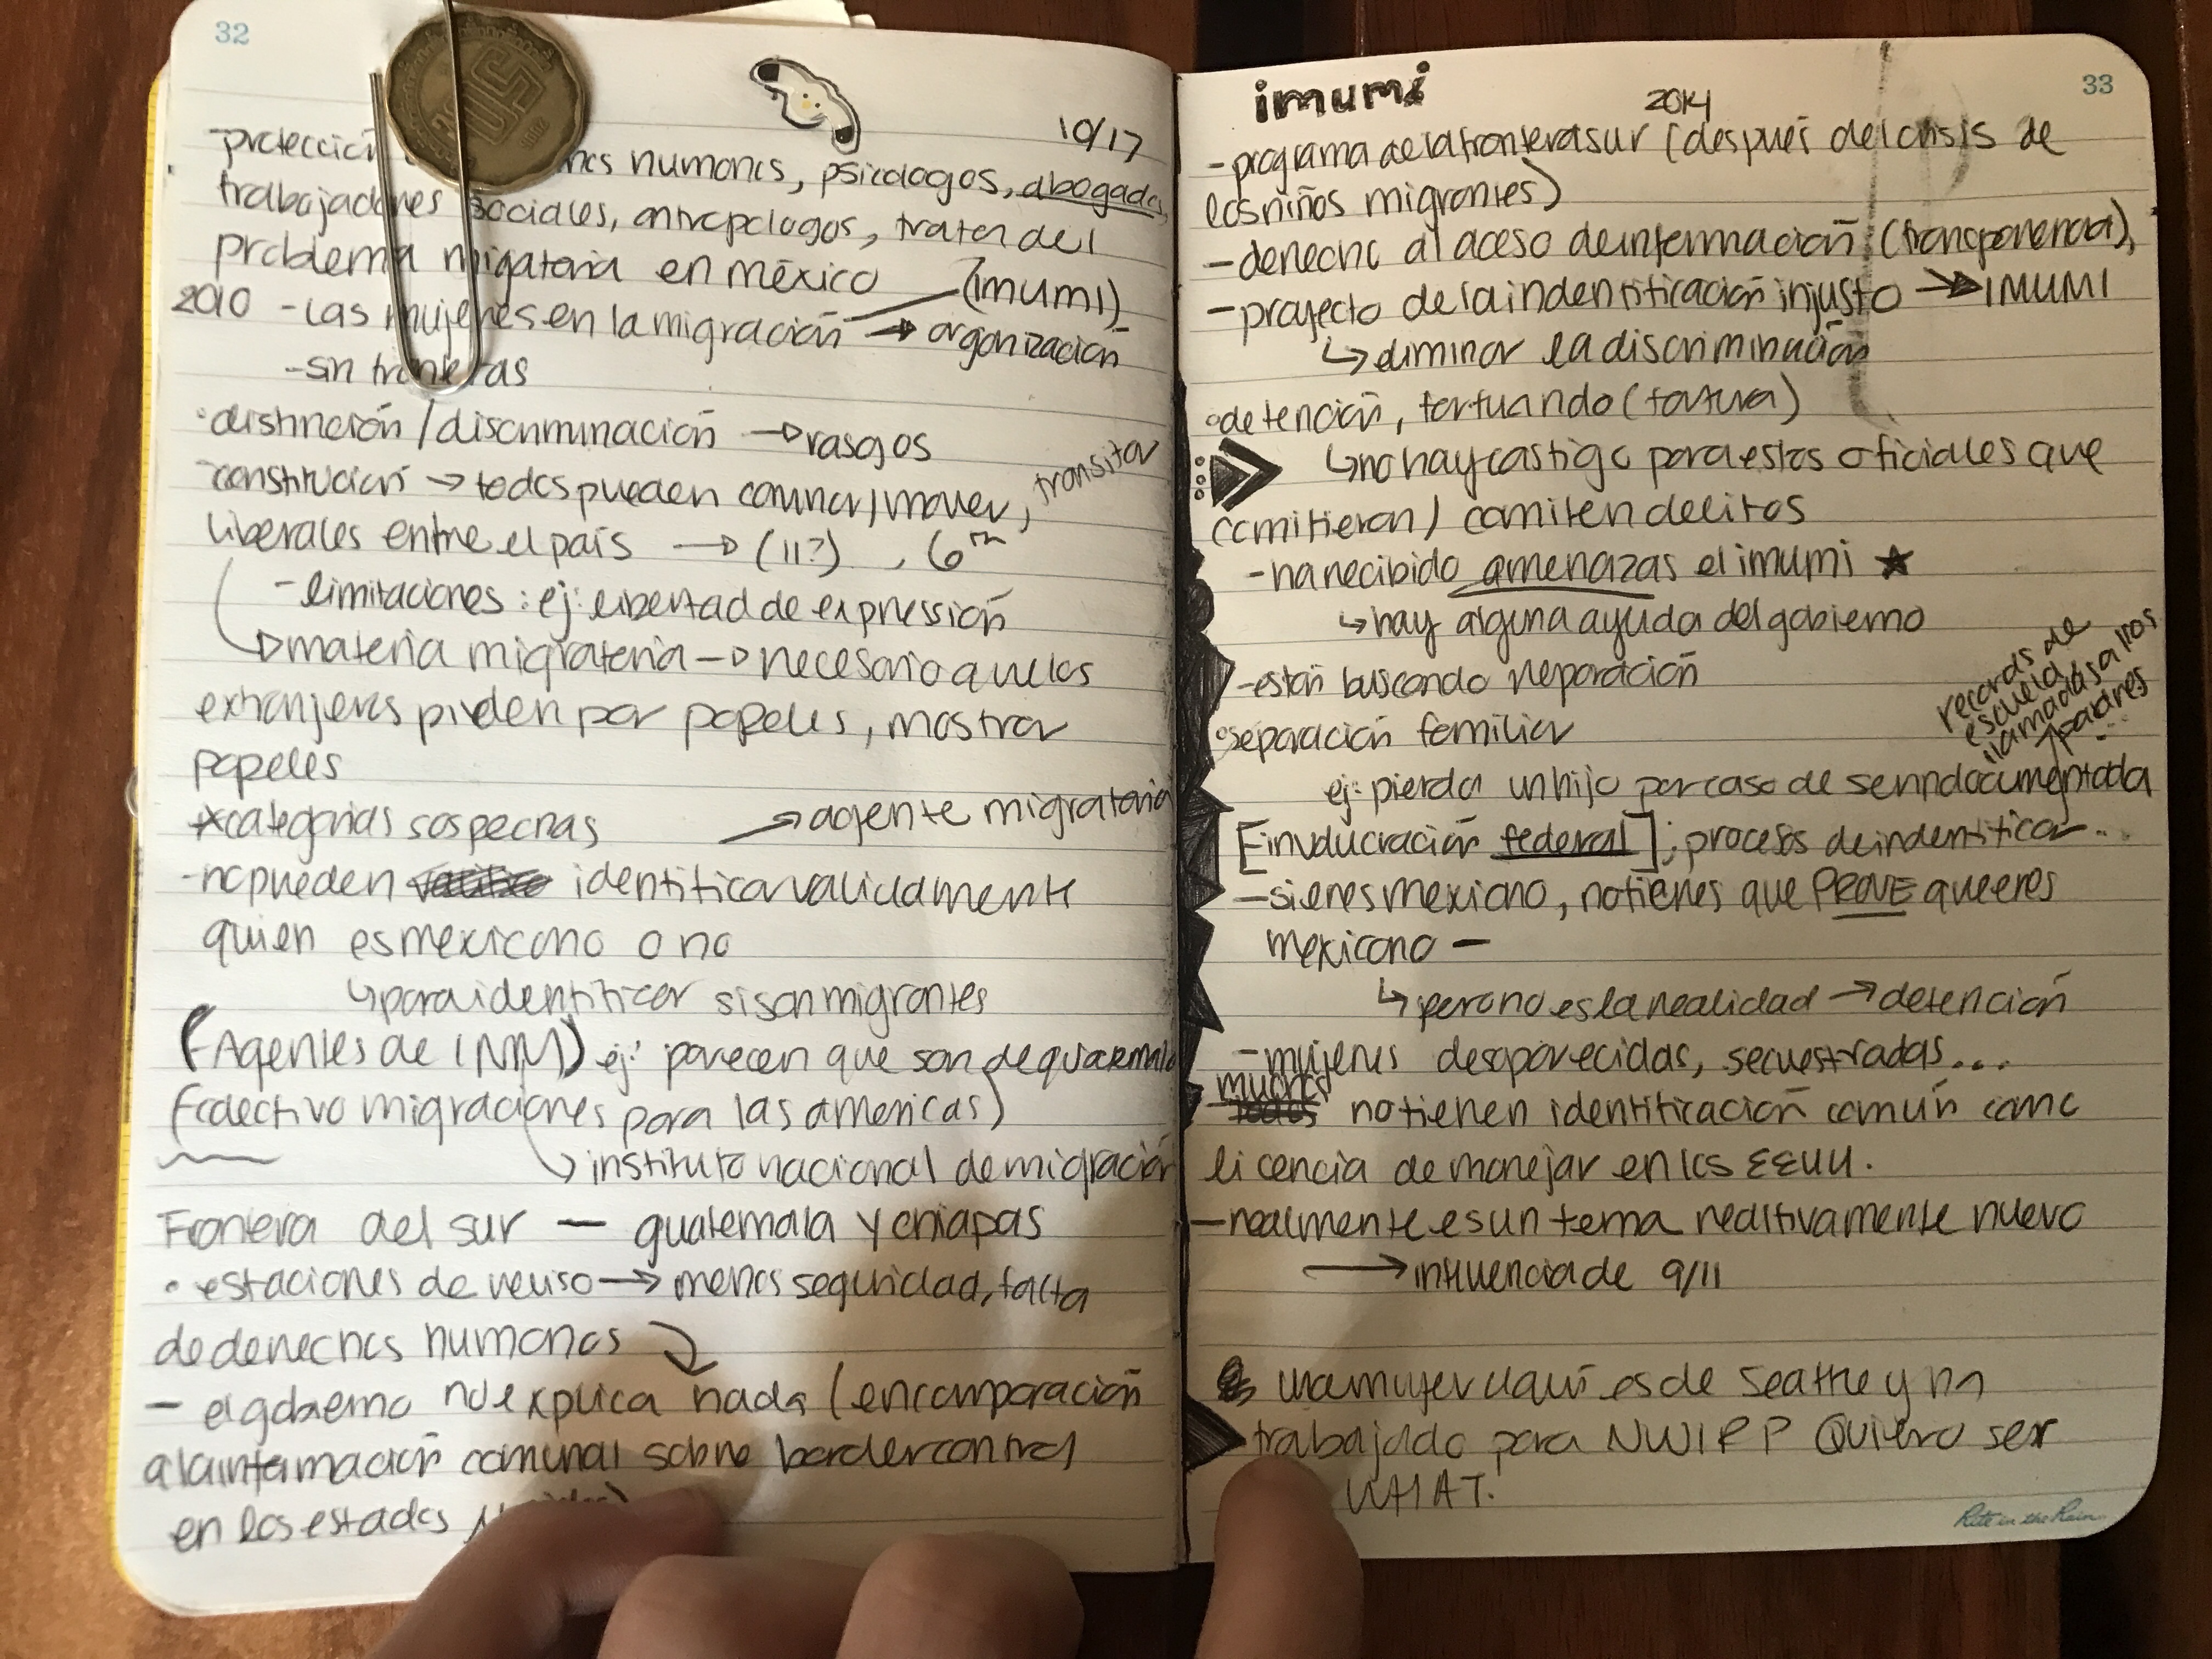 32
10/17
-protección humanos, psicologos, abogados,
trabajadores sociales, antropologos, tratan del
problema migatoria en méxico
2010 -Las mujeres en la migración → organización
(imumi)
-sin fronteras
·distinción/discriminación → rasgos
-constitución → todos pueden caminar/mover, transitar
liberales entre el país → (11?) , 6th
-limitaciones: ej: libertad de expressión
→materia migratoria → necesario que los
extranjeros piden por papeles, mostrar
papeles
*categorias sospechas → agente migratoria
-no pueden identificar validamente
quien es mexicano o no
↳para identificar si son migrantes
(Agentes de INM) ej: parecen que son de guatemala
(colectivo migraciones para las americas)
↳instituto nacional de migración
Frontera del sur — guatemala y chiapas
· estaciones de → menos seguridad, falta
de derechos humanos
— el gobierno no explica nada (encomporación
a la información comunal sobre border control
en los estados
imumi
2014
33
-programa de la frontera sur (después del crisis de
los niños migrantes)
-derecho al aceso de información (transparencia),
-proyecto de la indentificación injusto → IMUMI
↳eliminar la discriminación
·detención, tortuando (tortura)
↳no hay castigo para estos oficiales que
(comitieron) comiten delitos
-ha recibido amenazas el imumi ★
↳hay alguna ayuda del gobierno
-están buscando reparación
·separación familiar
records de
escuela
llamadas a los
padres
ej: pierda un hijo por caso de ser indocumentada
[involucración federal]; proceso de indentificar..
-si eres mexicano, no tienes que PROVE que eres
mexicano —
↳pero no es la realidad → detención
-mujeres desaparecidas, secuestradas...
muchos
-todos no tienen identificación común como
licencia de manejar en los EEUU.
-realmente es un tema realtivamente nuevo
→ influencia de 9/11
una mujer aquí es de Seattle y ha
trabajado para NWIRP Quiero ser
WHAT.
Rite in the Rain